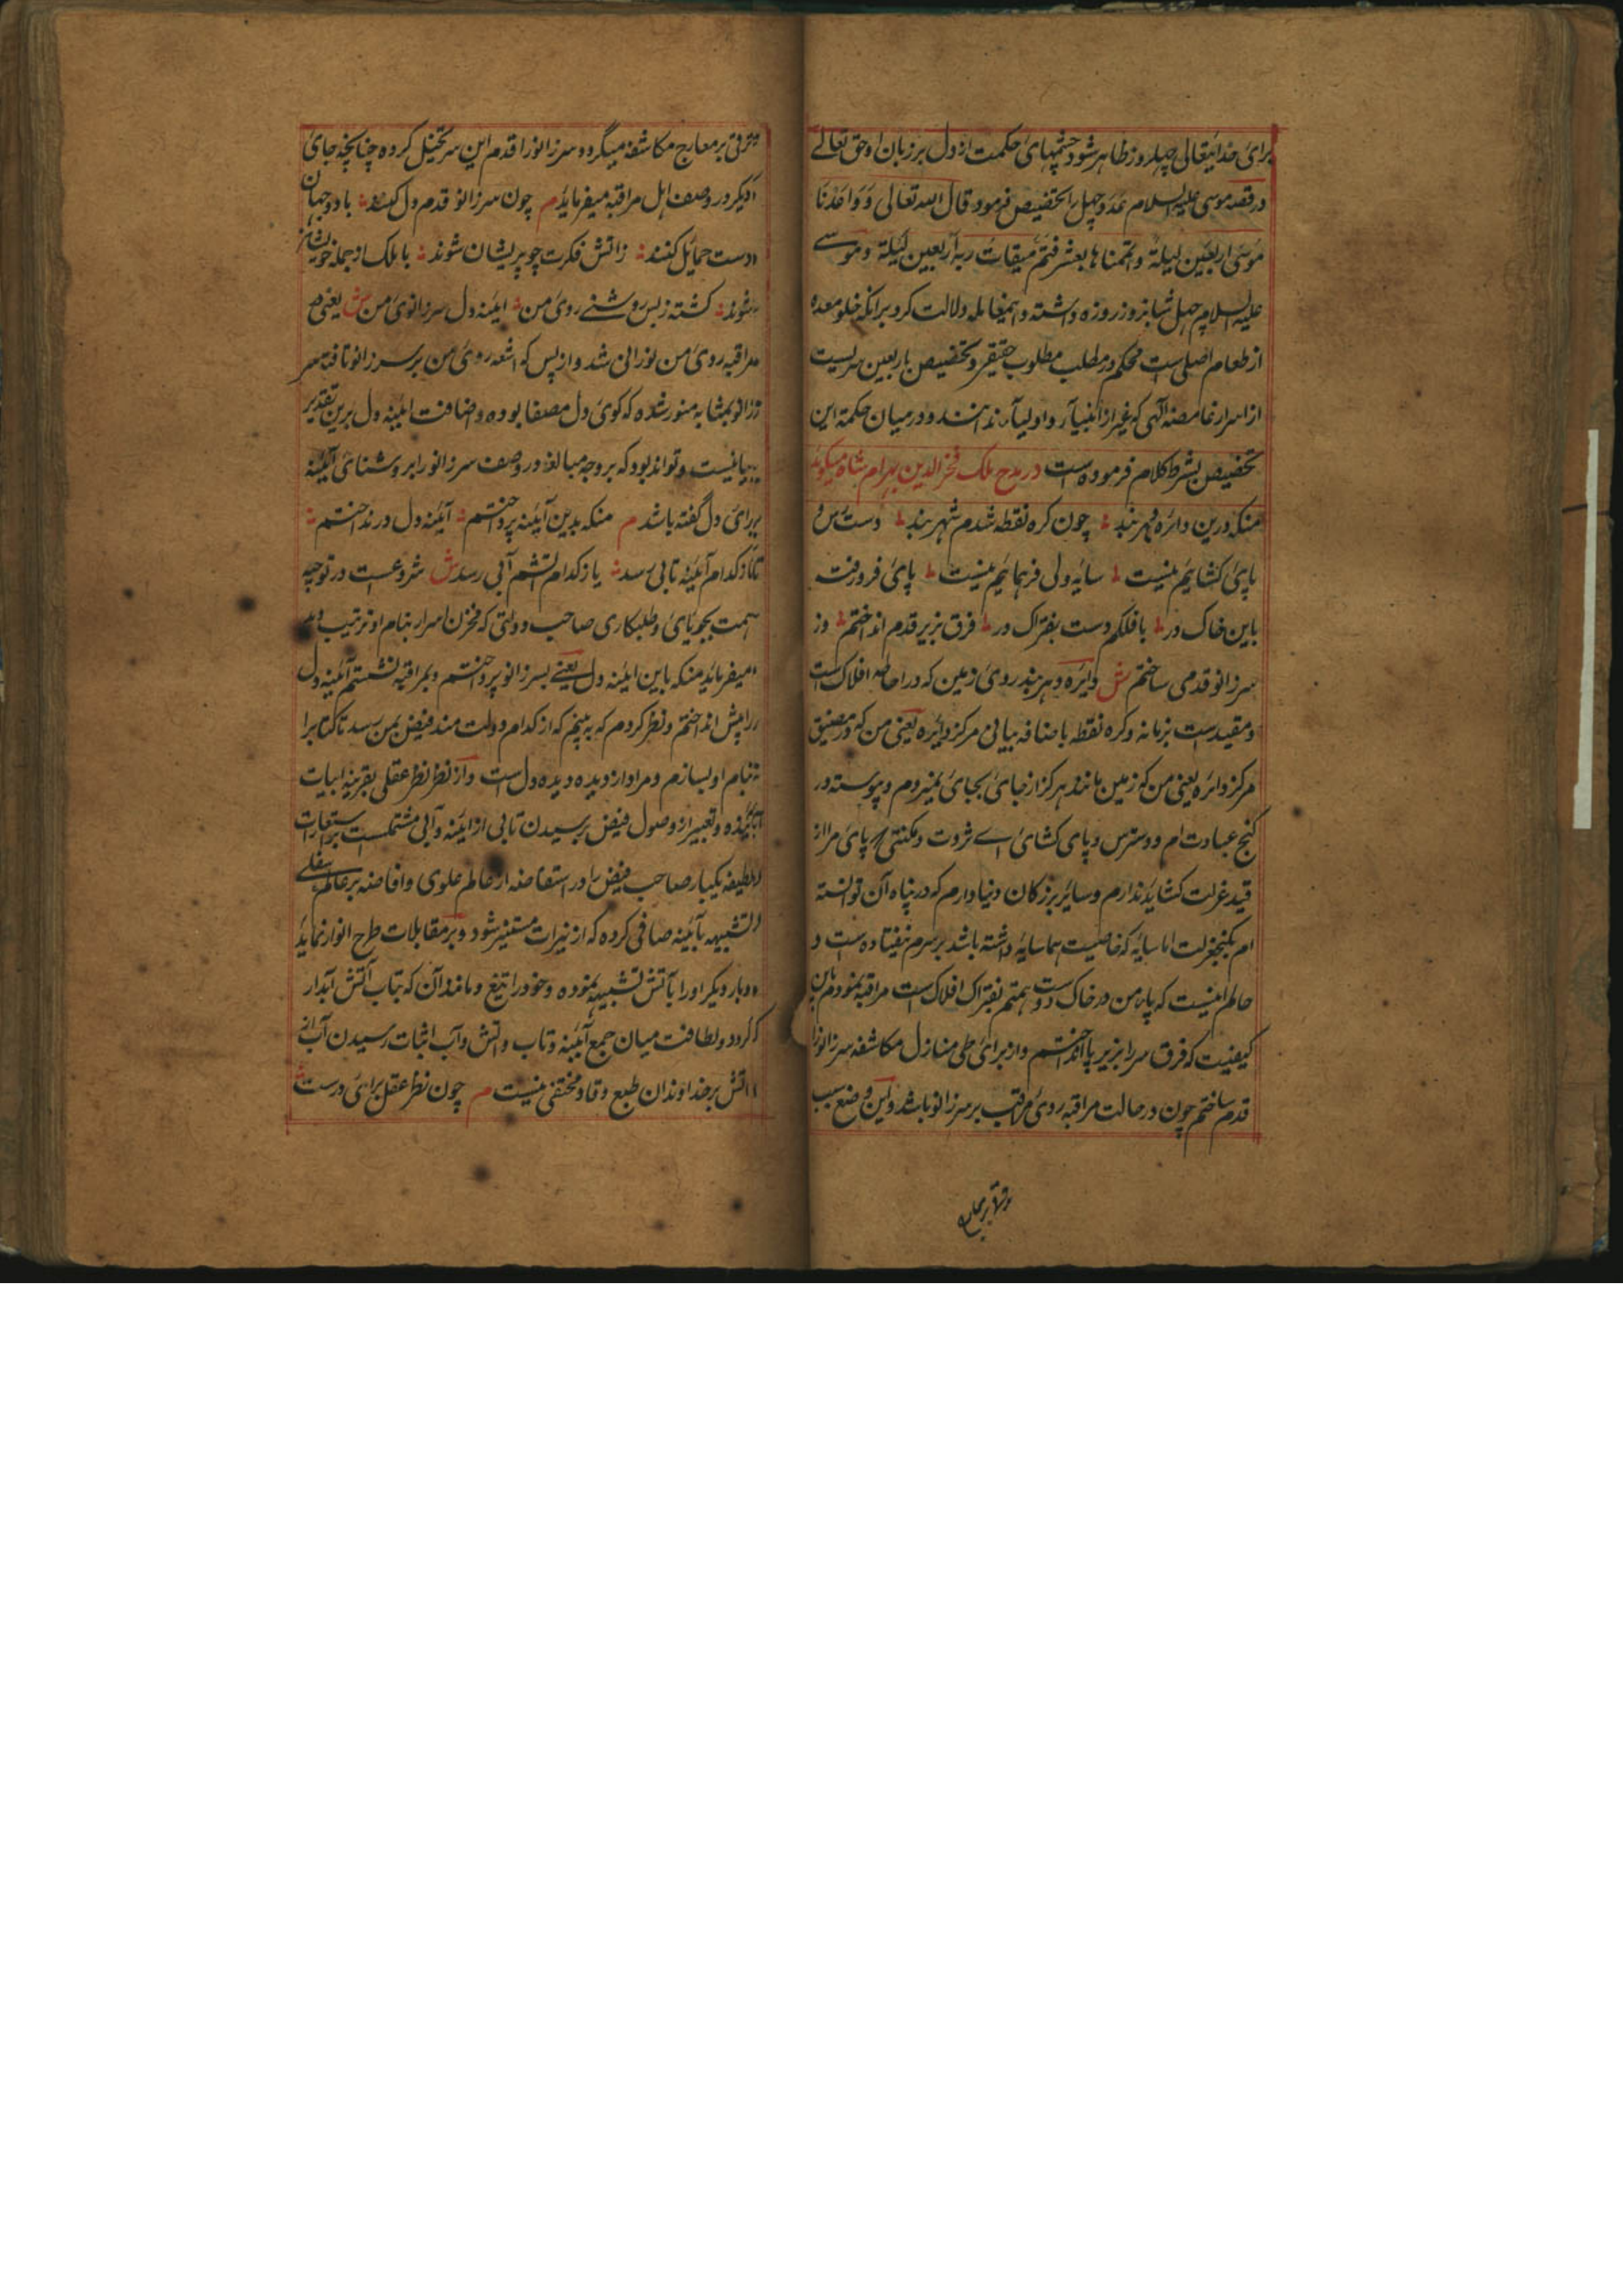 برای خدایتعالی چهل روز ظاهر شود چشمهای حکمت از دل بر زبان او حق تعالی
در قصه موسی علیه السلام عدد چهل را تخصیص فرمود قال الله تعالی وَوَاعَدْنَا
موسی اربعین لیلة و اتممناها بعشر فتم میقات ربه اربعین لیلة و موسی
علیه السلام چهل شبانروز روزه داشته و اینمعامله دلالت کرد برانکه خلو معده
از طعام اصلی است محکم در مطلب مطلوب حقیقی و تخصیص باربعین سریست
از اسرار غامضه الٰهی که غیر از انبیا و اولیا ندانند و در میان حکمة این
تخصیص بشرط کلام فرموده است در مدح ملک فخر الدین بهرام شاه میگوید
منکه درین دائره دهر بند چون گره نقطه شدم شهر بند دسترس و
پای کشایم نیست سایه ولی فر همایم نیست پای فرو رفت
باین خاک در با فلکم دست بفتراک در فرق بزیر قدم انداختم وز
سر زانو قدمی ساختم ش دایره دهر بند روی زمین که در احاطه افلاک است
و مقید است بزمانه و کره نقطه باضافه بیانی مرکز دایره یعنی من که در مضیق
مرکز دائره یعنی من که زمین مانند هرگز از جای بجای نمیروم و پیوسته در
کنج عبادت ام و دسترس و پای کشای اے ثروت و مکنتی که پای مرا از
قید عزلت کشاید ندارم و سایر بزرگان دنیا دارم که در پناه آن توانسته
ام بکنج عزلت اما سایه که خاصیت هما سایه داشته باشد بر سرم نیفتاده است و
حالم اینست که پای من در خاک و دست همتم بفتراک افلاک است مراقبه نمودم باین
کیفیت که فرق سر را بزیر پا انداختم و از برای طی منازل مکاشفه سر زانو را
قدم ساختم چون در حالت مراقبه روی مراقب بر سر زانو باشد و این وضع سبب
ترقی بر معارج
ترقی بر معارج مکاشفه میگردد سر زانو را قدم این سر تخیل کرده چنانچه جای
دیگر در وصف اهل مراقبه میفرماید م چون سر زانو قدم دل کنند با دو جهان
دست حمایل کنند ز اتش فکرت چو پریشان شوند با ملک از جمله خویشان
شوند گشته ز بس روشنی روی من آینه دل سر زانوی من ش یعنی در
مراقبه روی من نورانی شد و از بس که اشعه روی من بر سر زانو تافته سر
زانو بمثابه منور شده که کوی دل مصفا بوده و اضافت اینه دل برین تقدیر
بیانیست و تواند بود که بر وجه مبالغه در وصف سر زانو را بروشنای آئینه
برای دل گفته باشد م منکه بدین آینه پرداختم آئنه دل در انداختم
تا ز کدام آئینه تابی رسد یا ز کدام اتشم آبی رسد ش شروعست در توجیه
همت بجویای و طلبکاری صاحب دولتی که مخزن اسرار بنام او ترتیب دهد
میفرماید منکه باین اینه دل یعنی بسر زانو پرداختم و بمراقبه نشستم آئینه دل
را پیش انداختم و نظر کردم که به بینم که از کدام دولت مند فیض بمن رسد تا کتابرا
بنام او بسازم و مراد از دیده دیده دل است و از نظر نظر عقلی بقرینه ابیات
آینده و تعبیر از وصول فیض برسیدن تابی از اینه و آبی مشتملست بر استعارات
لطیفه یکبار صاحب فیض را در استفاضه از عالم علوی و افاضه بر عالم سفلی
تشبیهه بآئینه صافی کرده که از نیرات مستنیر شود و بر مقابلات طرح انوار نماید
و بار دیگر او را بآتش تشبیهه نموده و خود را تیغ و مانند آن که بتاب آتش آبدار
گردد و لطافت میان جمع آئینه و تاب و اتش و آب اثبات رسیدن آب از
اتش بر خداوندان طبع وقاد مختفی نیست م چون نظر عقل برای درست